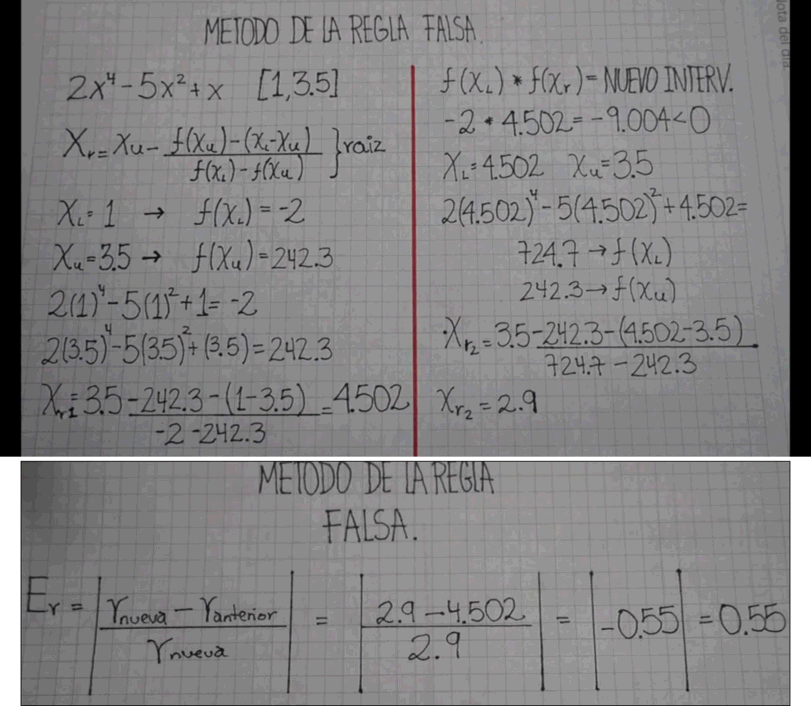 METODO DE LA REGLA FALSA.
2x⁴-5x²+x [1,3.5]
Xᵣ= Xu- f(Xu)-(X꜀-Xu) / f(X꜀)-f(Xu) }raiz
X꜀=1 → f(X꜀)=-2
Xu=3.5 → f(Xu)=242.3
2(1)⁴-5(1)²+1=-2
2(3.5)⁴-5(3.5)²+(3.5)=242.3
Xr1=3.5-242.3-(1-3.5) / -2-242.3 =4.502
f(XL)*f(Xr)=NUEVO INTERV.
-2*4.502=-9.004<0
XL=4.502 Xu=3.5
2(4.502)⁴-5(4.502)²+4.502=
724.7→f(XL)
242.3→f(Xu)
·Xr₂=3.5-242.3-(4.502-3.5) / 724.7-242.3
Xr₂=2.9
METODO DE LA REGLA
FALSA.
Er = | rnueva - ranterior / rnueva | = | 2.9-4.502 / 2.9 | = |-0.55| = 0.55